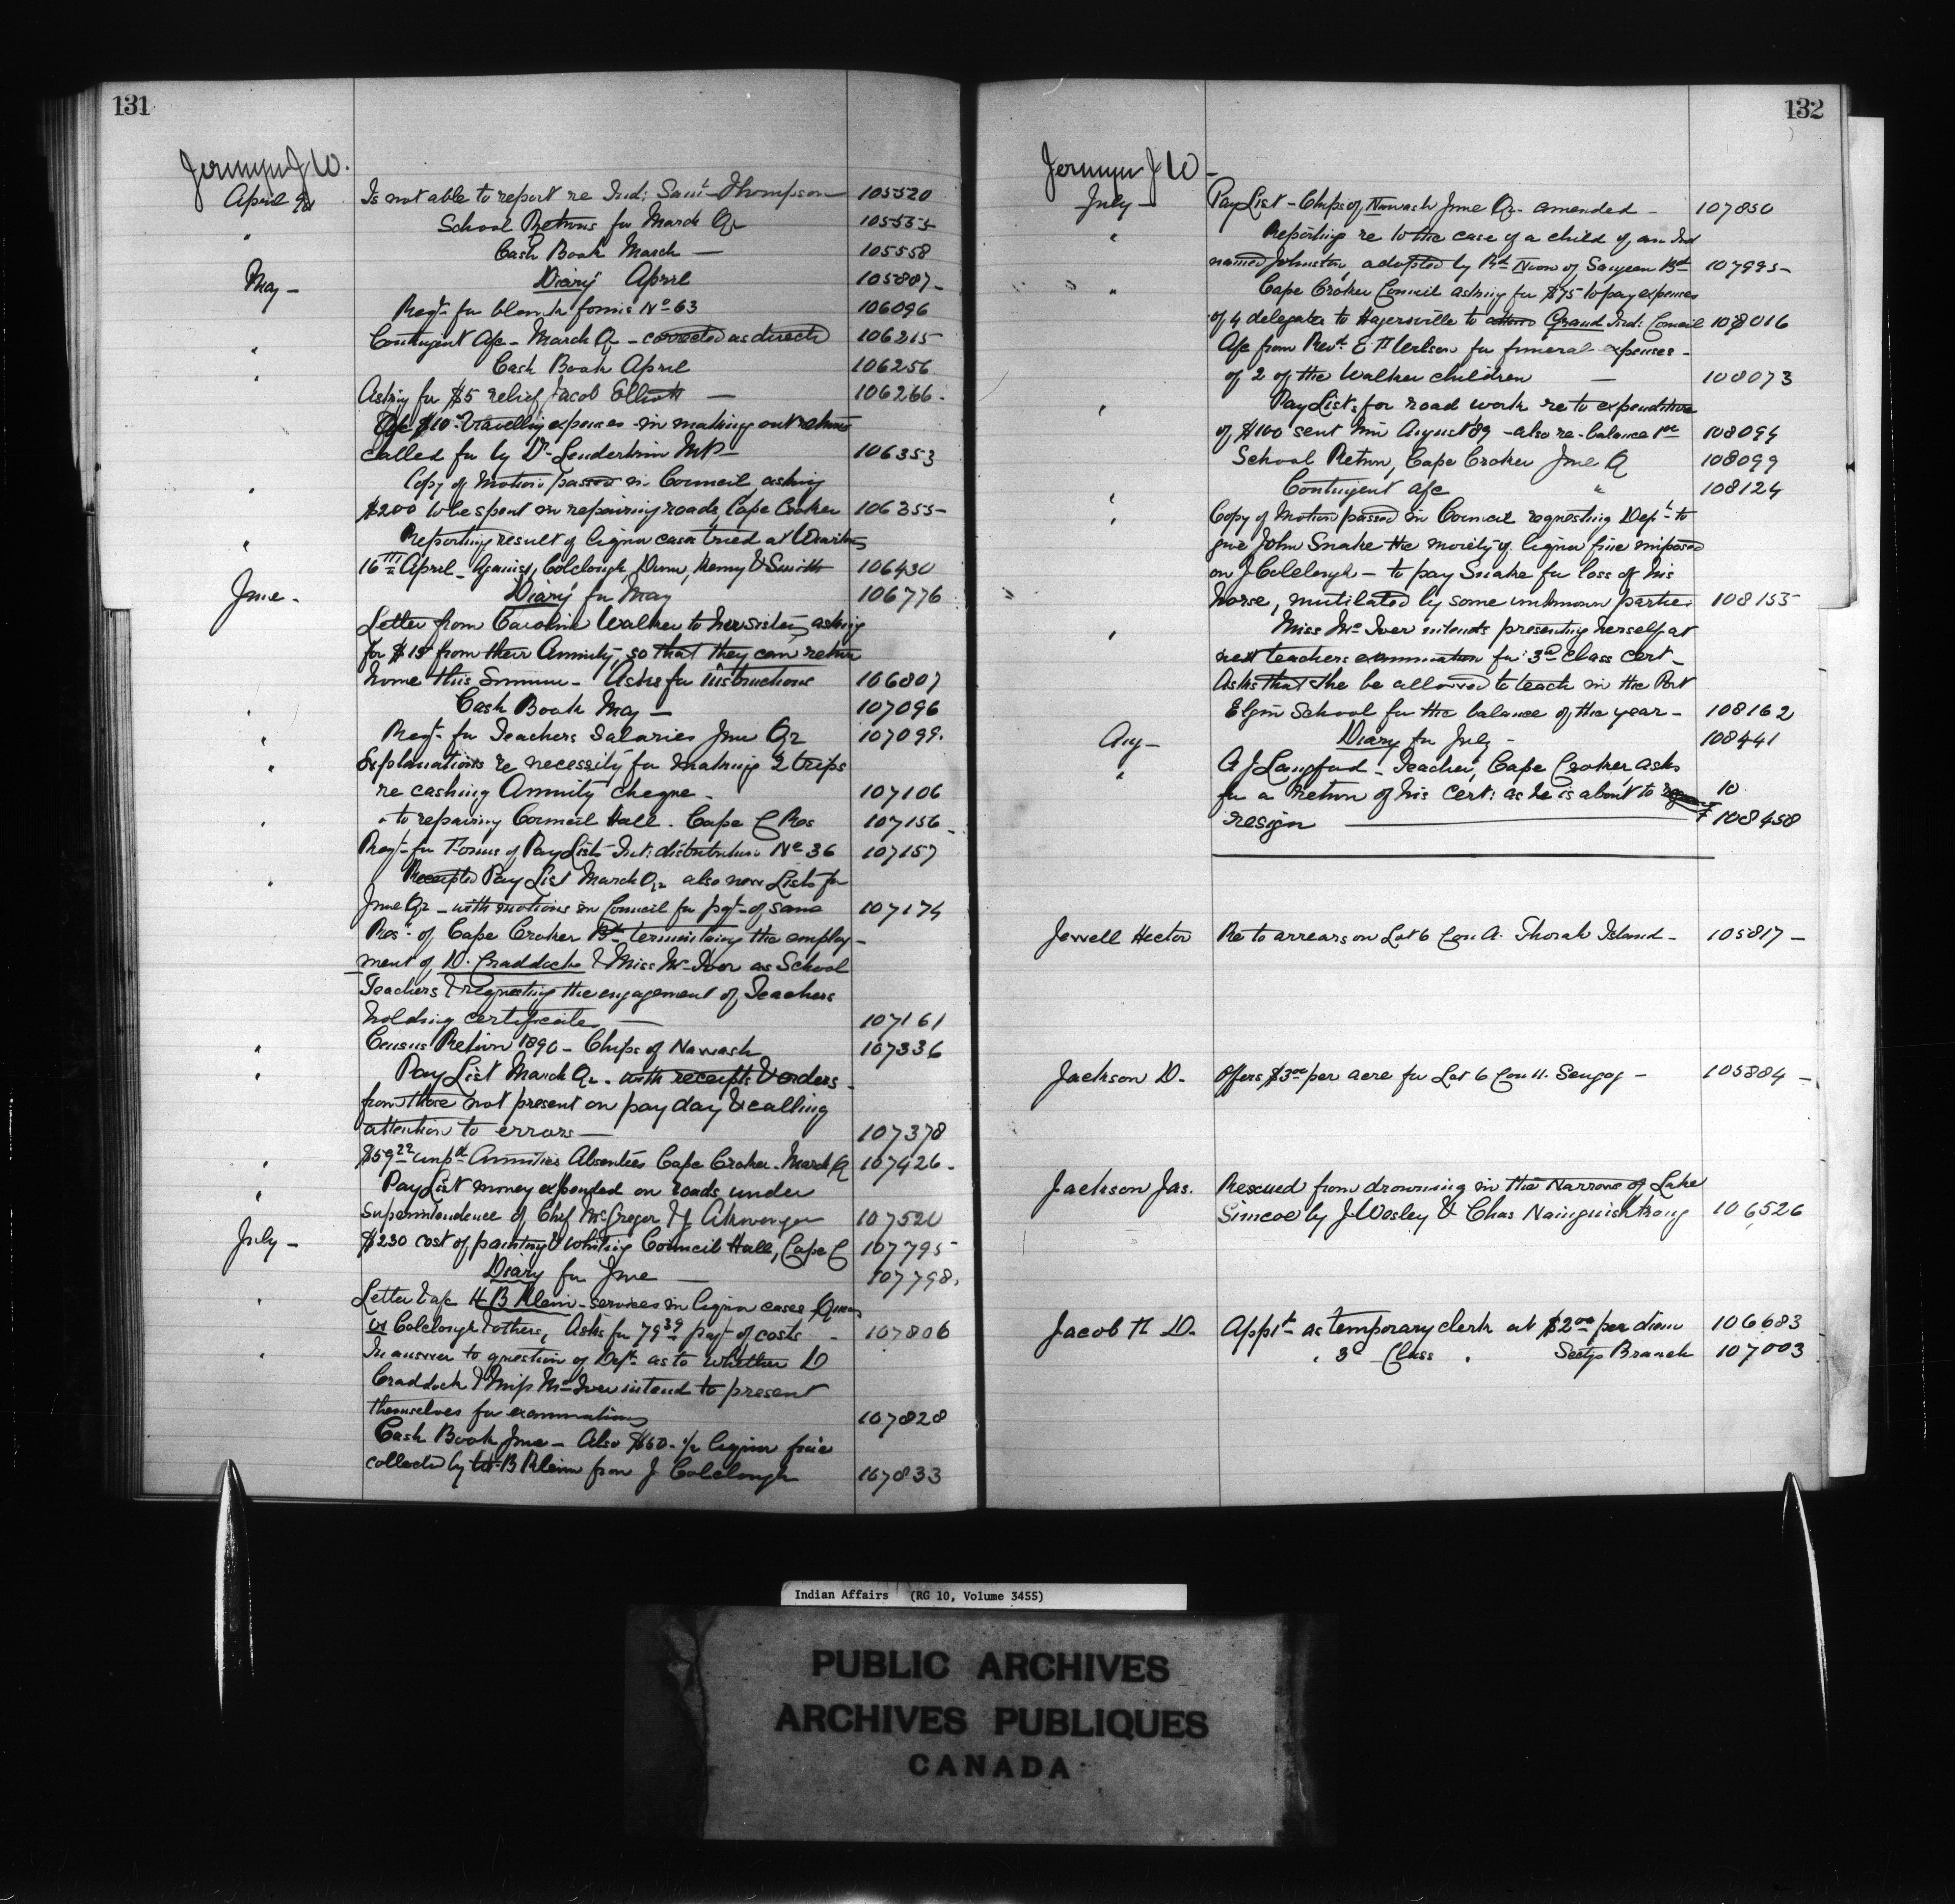 131
Jermyn J W.
April 90 Is not able to report re Ind: Saml Thompson 105520
School Returns for March Qr 105555
" Cash Book March — 105558
May — Diary April 105807
Reqt for blank forms No 63 106096
" Contingent a/c - March Q - corrected as directed 106215
" Cash Book April 106256
Asking for $5 relief Jacob Elliott — 106266
a/c $10 travelling expenses in making out returns
called for by Dr Landerkin MP — 106353
" Copy of Motion passed in Council asking
$200 to be spent in repairing roads, Cape Croker 106355
" Reporting result of liquor cases tried at Wiarton
16TH April - against, Colclough, Dunn, Henry & Smith 106430
June - Diary for May 106776
Letter from Caroline Walker to her sister, asking
for $15 from their Annuity, so that they can return
home this Summer - Asks for instructions 106807
" Cash Book May — 107096
" Reqt for Teachers Salaries June Qr 107099
" Explanations re necessity for making 2 trips
re cashing Annuity cheque - 107106
" " to repairing Council Hall. Cape C Res 107156
Reqt for Forms of Pay Lists Int: distribution No 36 107157
" Receipted Pay List March Qr also new Lists for
June Qr - with motions in Council for pgt of same 107174
Resn of Cape Croker Bd terminating the employ-
ment of D. Craddock & Miss McIver as School
Teachers & requesting the engagement of Teachers
holding certificates — 107161
" Census Return 1890 - Chips of Nawash 107336
" Pay List March Qr. with receipts & orders
from those not present on pay day & calling
attention to errors — 107378
" $59 22 unpd Annuities Absentees Cape Croker. March Q 107426
" Pay List money expended on roads under
Superintendence of Chief McGregor & J. Akiwenzie 107520
July - $230 cost of painting & whiting Council Hall, Cape C 107795
Diary for June — 107798
" Letter & a/c H B Klein - services in liquor cases Queen
vs Colclough & others, Asks for 79 39 pgt of costs - 107806
" In answer to question of Dept as to whether D
Craddock & Miss McIver intend to present
themselves for examination 107828
Cash Book June - Also $50. ½ liquor fine
collected by H B Klein from J Colclough 107833
132
Jermyn J W -
July - Pay List - Chips of Nawash June Qr. amended - 107850
" Reporting re to the case of a child of an Ind
named Johnston, adopted by Rd Nion of Saugeen Bd 107995
" Cape Croker Council asking for $75 to pay expenses
of 4 delegates to Hagersville to attend Grand Ind: Council 108016
a/c from Revd E funeral expenses -
of 2 of the Walker children — 108073
" Pay Lists for road work re to expenditure
of $100 sent him August 89 - also re-balance 108094
School Return, Cape Croker June Q 108099
" Contingent a/c " 108124
" Copy of Motion passed in Council requesting Dept to
give John Snake the moiety of liquor fine imposed
on J Colclough - to pay Snake for loss of his
horse, mutilated by some unknown parties 108155
" Miss McIver intends presenting herself at
next teachers examination for 3rd Class Cert -
Asks that she be allowed to teach in the Port
Elgin School for the balance of the year - 108162
Aug - Diary for July - 108441
" A J Langford - Teacher, Cape Croker asks
for a return of his Cert: as he is about to 10
resign 108458
Jewell Hector Re to arrears on Lot 6 Con A. Thorah Island - 105817
Jackson D. Offers $3 00 per acre for Lot 6 Con 11. Scugog - 105884
Jackson Jas. Rescued from drowning in the Narrows of Lake
Simcoe by J Wesley & Chas Nainguishkung 106526
Jacob D. Appt as temporary clerk at $2 00 per diem 106683
" 3d Class " Sectys Branch 107003
Indian Affairs (RG 10, Volume 3455)
PUBLIC ARCHIVES
ARCHIVES PUBLIQUES
CANADA